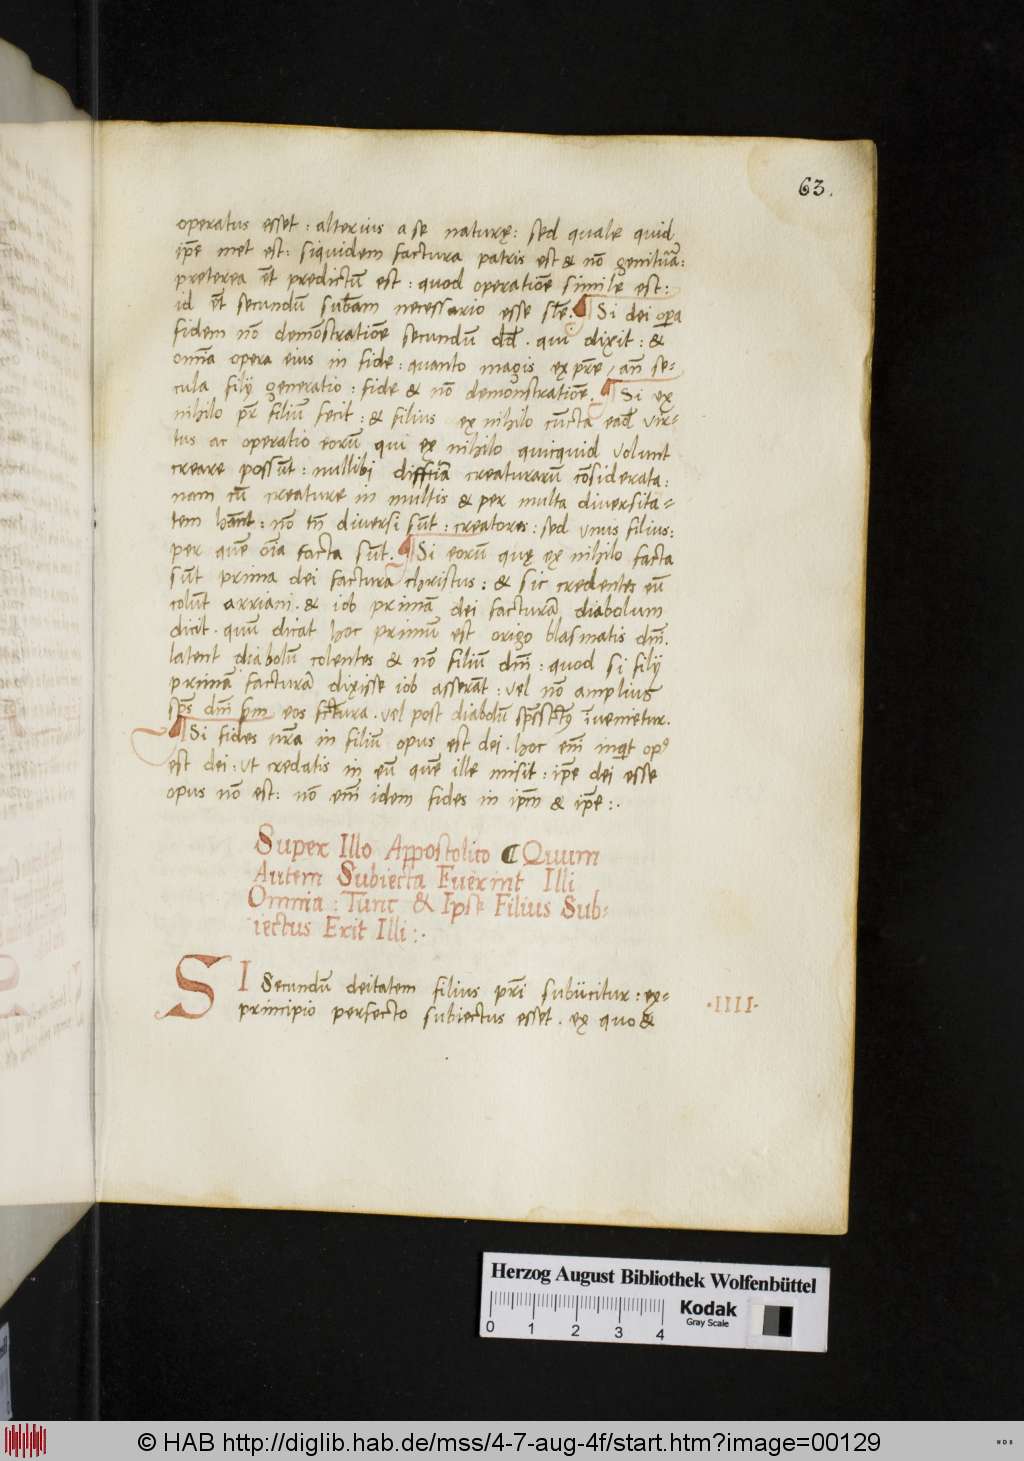 63.
operatus esset : alterius a se naturę: sed quale quid
ip̄e met est : siquidem factura patris est & nō genitur̄a:
preterea ēt predictū est : quod operatiōe simile est :
id ēt secundū sub̄am necessario esse sīle. ¶ Si dei opera
fidem nō demōstratiōe secundū dd̄ . qui dixit : &
omīa opera eius in fide : quanto magis ex pr̄e, an̄ se-
cula filij generatio : fide & nō demonstratiōe. ¶ Si ex
nihilo pr̄ filiū fecit : & filius ex nihilo cūcta ead̄ vir-
tus ac operatio eorū qui ex nihilo quicquid volunt
creare possūt : nullibi diffīa creaturarū cōsiderata :
nam cū creature in multis & per multa diversita-
tem hānt : nō tn̄ diversi sūt : creatores : sed unus filius :
per quē oīa facta sūt. ¶ Si eorū quę ex nihilo facta
sūt prima dei factura christus : & sic credentes eū
colūt arriani . & iob primā dei facturā diabolum
dicit . quū dicat hoc primū est origo blasmatis dnī.
latent diabolū colentes & nō filiū dnī : quod si filij
primā facturā dixisse iob asserāt : vel nō amplius
sp̄s dnī eos fctura . vel post diabolū īvenietur.
¶ Si fides nr̄a in filiū opus est dei . hoc em̄ inq̄t opꝰ
est dei : ut credatis in eū quē ille misit : ip̄e dei esse
opus nō est : nō em̄ idem fides in ip̄m & ip̄e : .
Super Illo Appostolico ¶ Quum
Autem Subiecta Fuerint Illi
Omnia : Tūnc & Ipse Filius Sub-
iectus Erit Illi : .
SI Secundū deitatem filius pr̄i subiicitur : ex-
principio perfecto subiectus esset . ex quo &
·IIII·
Herzog August Bibliothek Wolfenbüttel
0 1 2 3 4
Kodak
Gray Scale
© HAB http://diglib.hab.de/mss/4-7-aug-4f/start.htm?image=00129